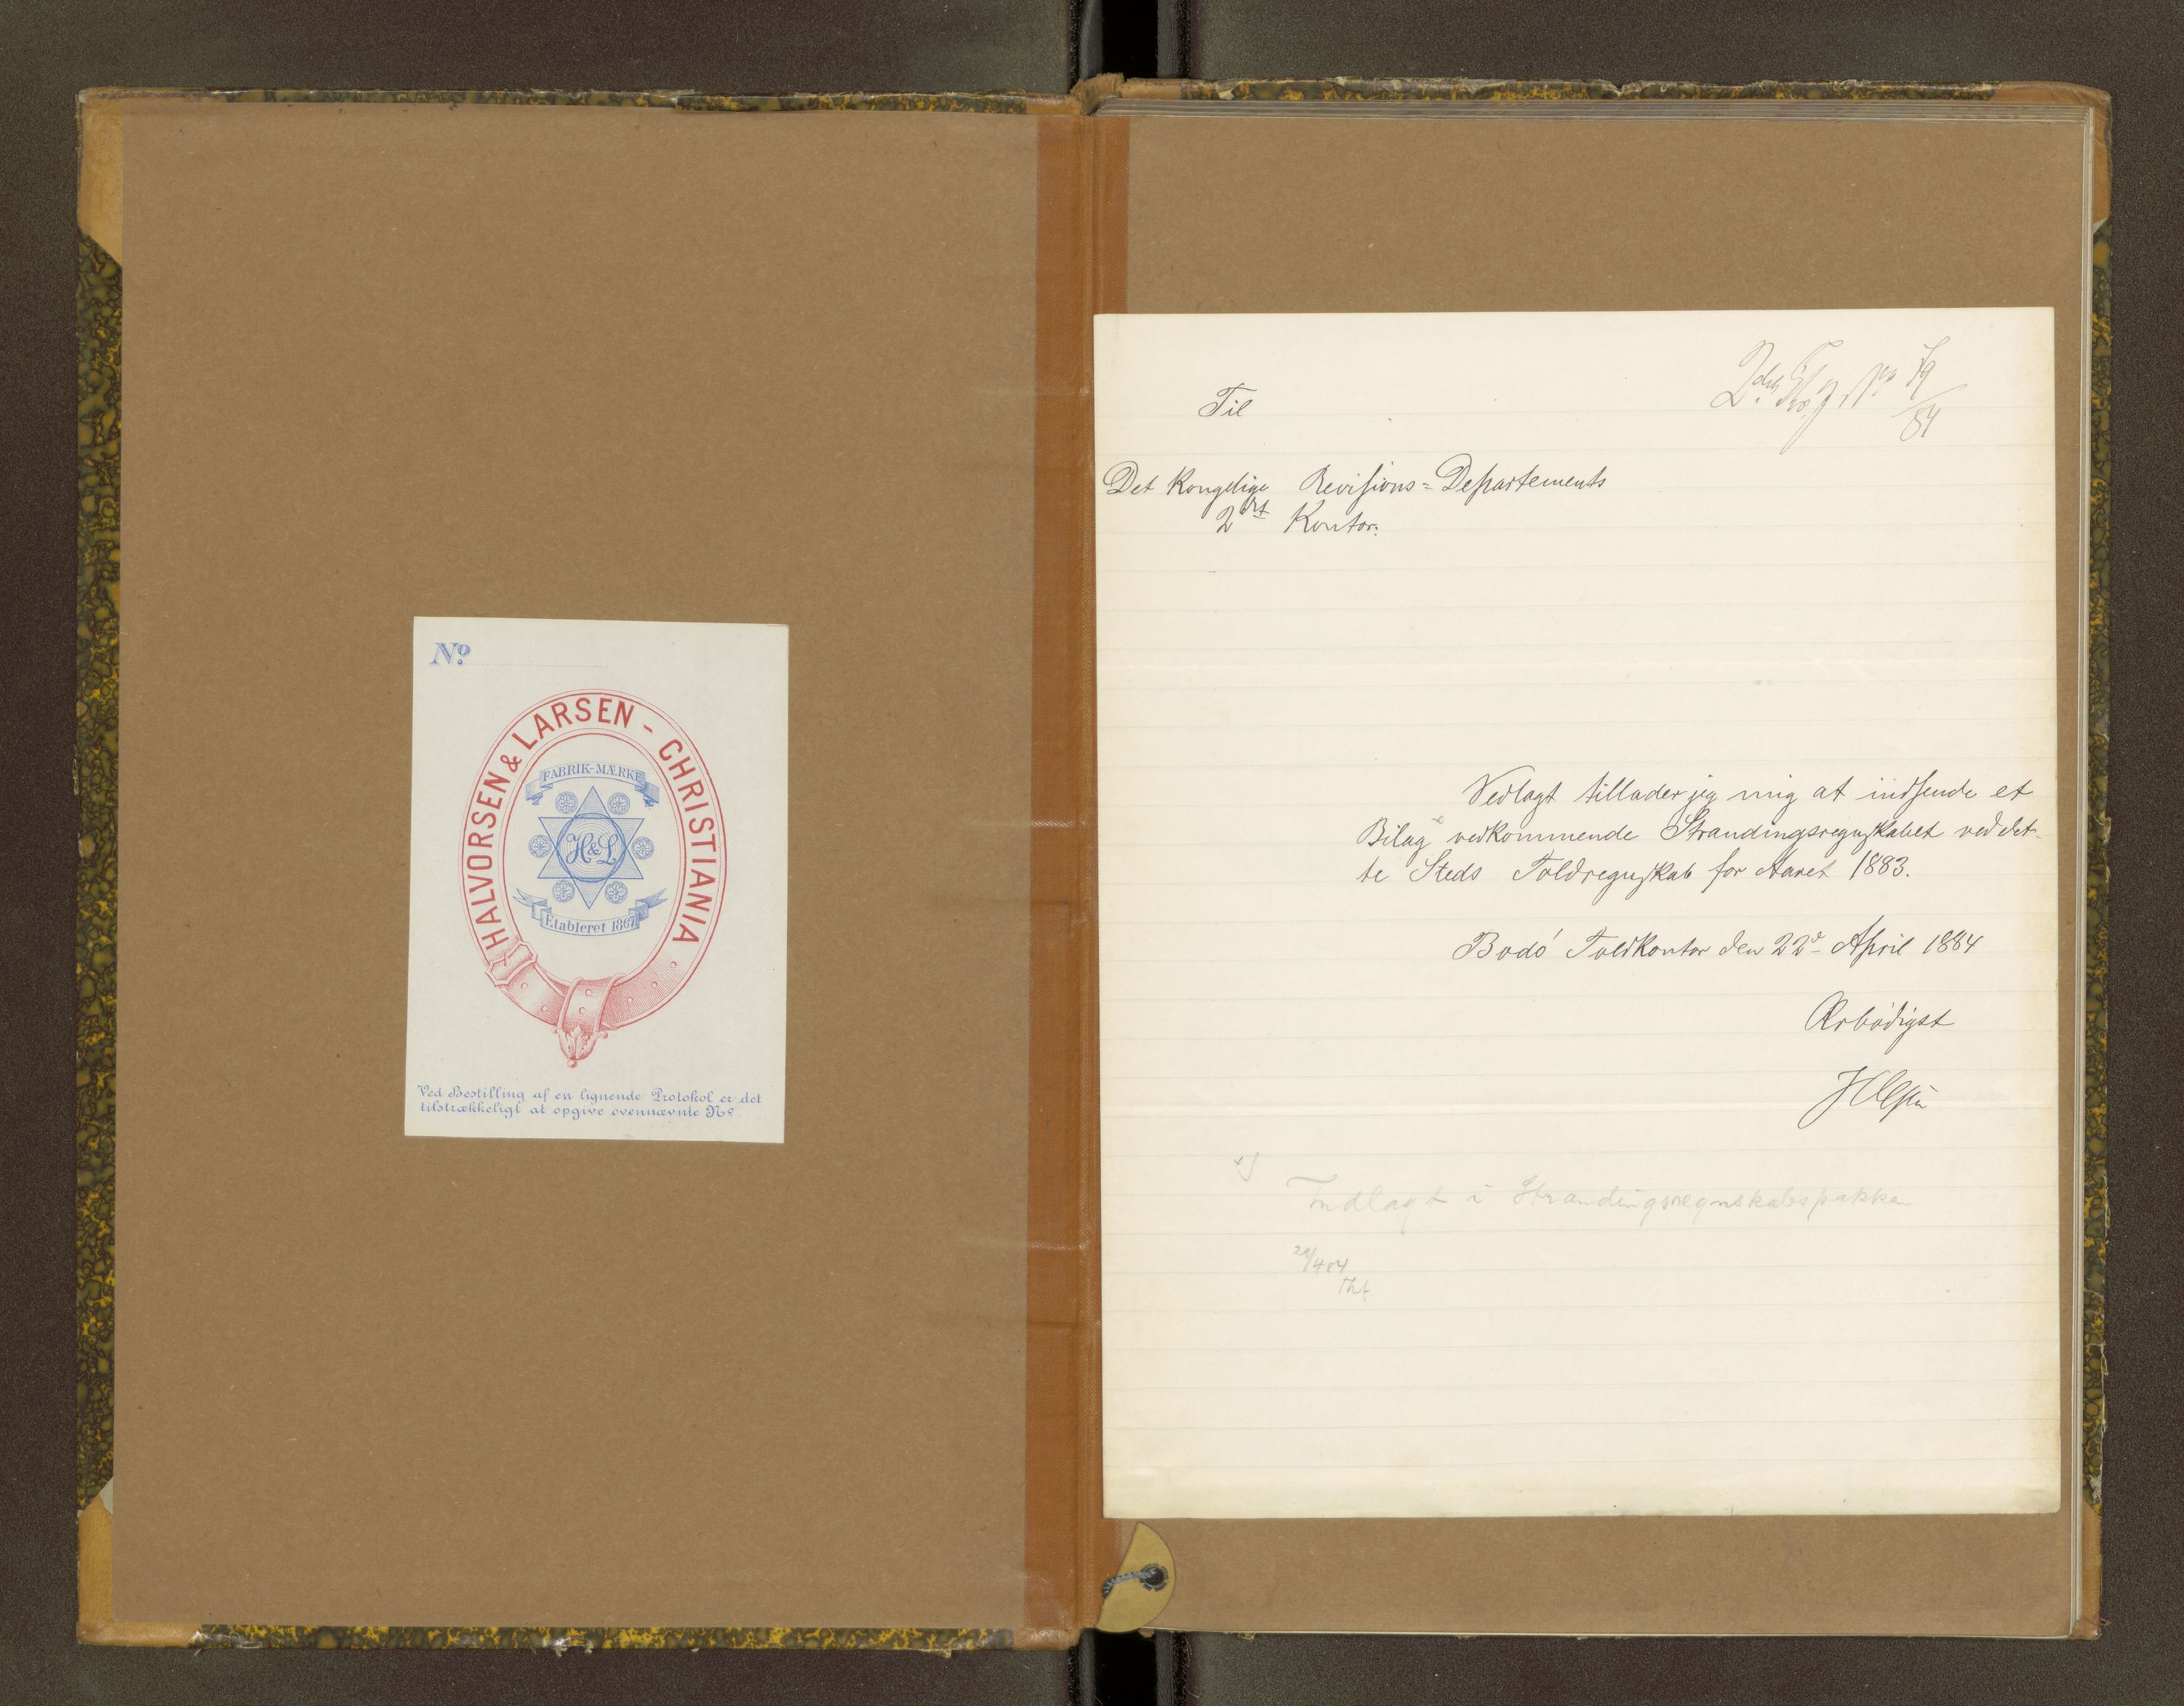 Nº
HALVORSEN & LARSEN - CHRISTIANIA
FABRIK-MÆRKE
H&L
Etableret 1867
Ved Bestilling af en lignende Protokol er det
tilstrækkeligt at opgive ovennævnte Nº
84
Til
Det Kongelige Revisions=Departements
2det Kontor.
Vedlagt tillader jeg mig at indsende et
Bilag x vedkommende Strandingsregnskabet ved det-
te Steds Toldregnskab for Aaret 1883.
Bodó Toldkontor den 22de April 1884
Ærbødigst
x)
Indlagt i Strandingsregnskabspakken